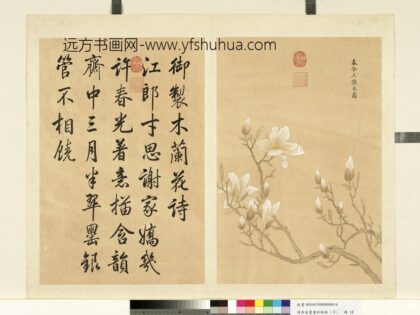 远方书画网-www.yfshuhua.com
春分三候木蘭
御製木蘭花詩
江郎才思謝家嬌幾
許春光著意描含韻
齋中三月半翠罍銀
管不相饒